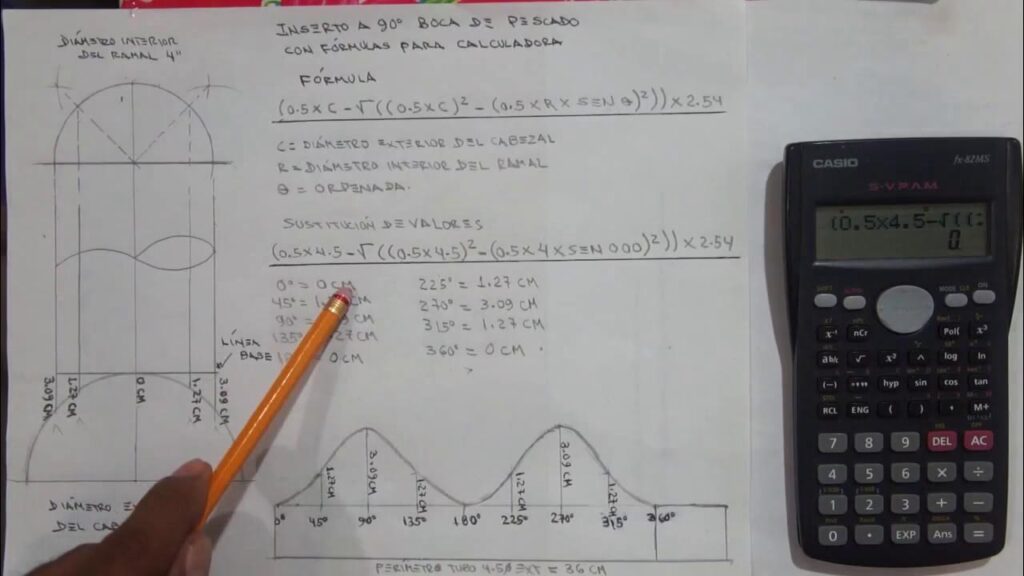 DIÁMETRO INTERIOR
DEL RAMAL 4"
INSERTO A 90° BOCA DE PESCADO
CON FÓRMULAS PARA CALCULADORA
FÓRMULA
(0.5 x C - √((0.5 x C)² - (0.5 x R x SEN θ)²)) x 2.54
C = DIÁMETRO EXTERIOR DEL CABEZAL
R = DIÁMETRO INTERIOR DEL RAMAL
θ = ORDENADA.
SUSTITUCIÓN DE VALORES
(0.5 x 4.5 - √((0.5 x 4.5)² - (0.5 x 4 x SEN 000)²)) x 2.54
0° = 0 CM
45° = CM
90° = CM
135° = CM
= 0 CM
225° = 1.27 CM
270° = 3.09 CM
315° = 1.27 CM
360° = 0 CM
LÍNEA
BASE
3.09 CM
1.27 CM
0 CM
1.27 CM
3.09 CM
DIÁMETRO
DEL
1.27 CM
3.09 CM
1.27 CM
1.27 CM
3.09 CM
1.27 CM
0° 45° 90° 135° 180° 225° 270° 315° 360°
PERÍMETRO TUBO 4.5 Ø EXT = 36 CM
CASIO fx-82MS
S-V.P.A.M.
(0.5x4.5-√((:
0
SHIFT ALPHA MODE CLR ON
x⁻¹ nCr Pol( x³
ab/c √ x² ^ log ln
(-) °''' hyp sin cos tan
RCL ENG ( ) , M+
7 8 9 DEL AC
4 5 6 × ÷
1 2 3 + −
0 · EXP Ans =